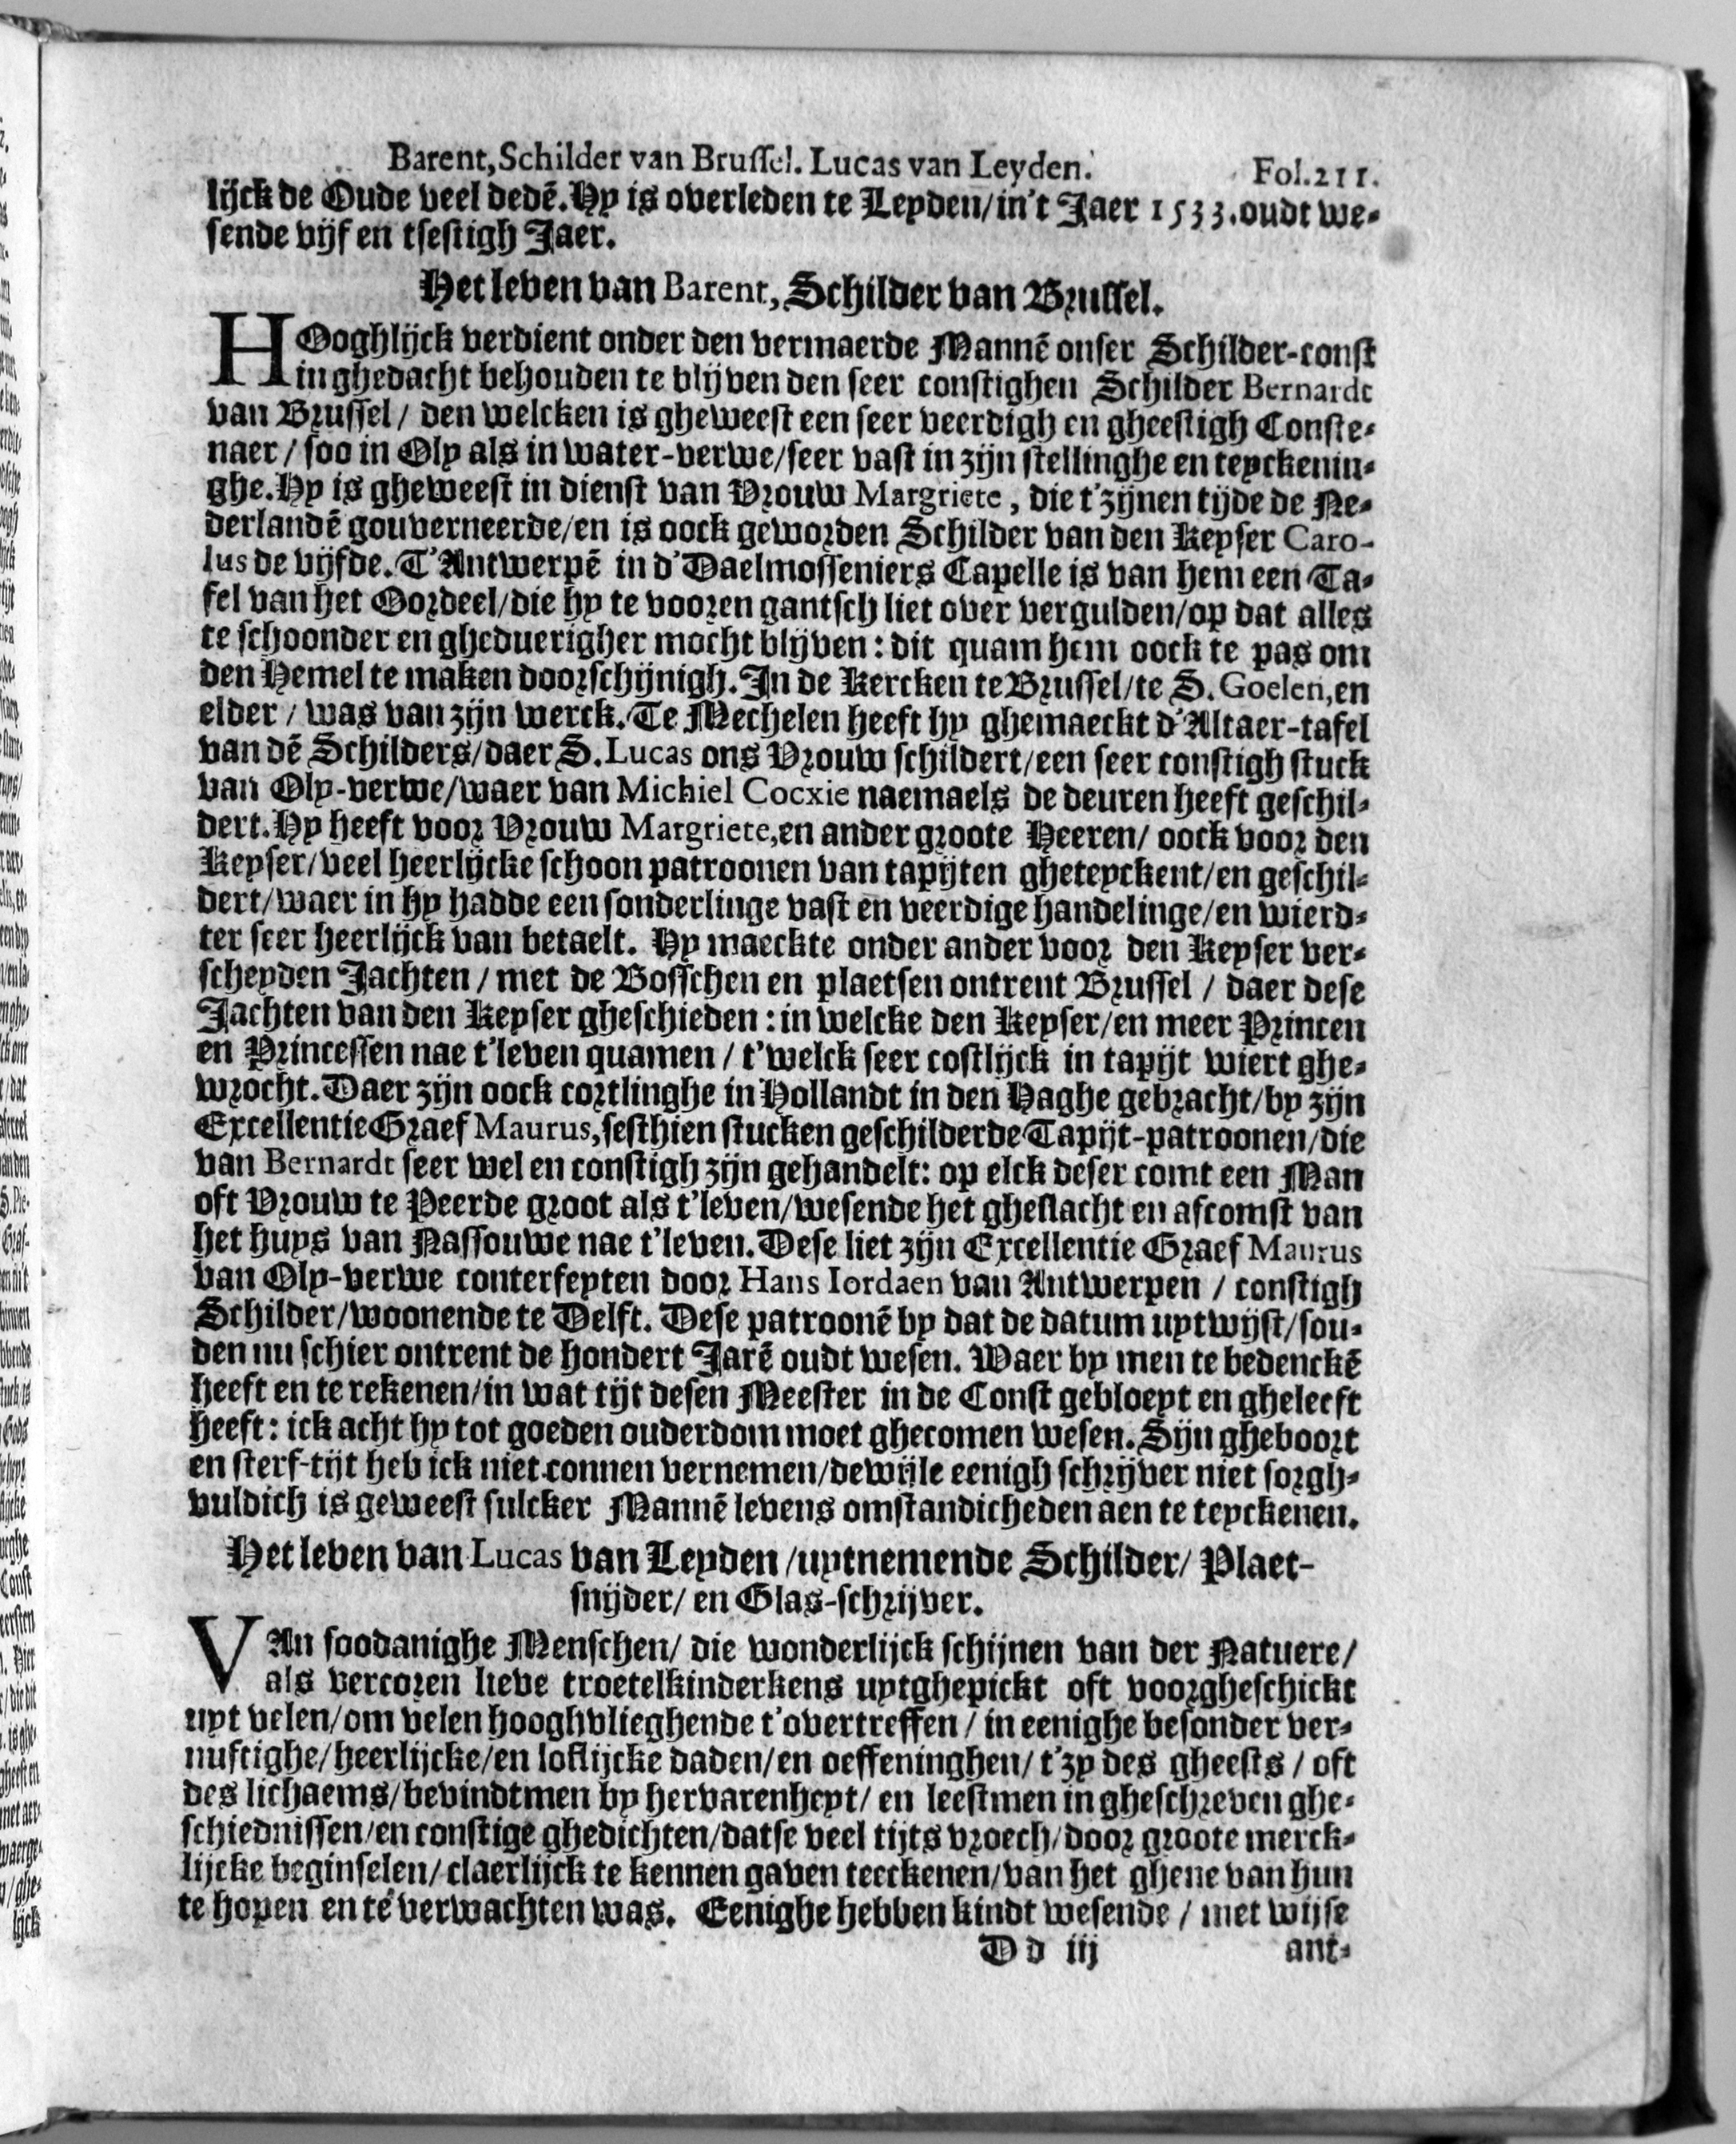 Barent, Schilder van Brussel. Lucas van Leyden. Fol.211.
lijck de Oude veel dedē. Hy is overleden te Leyden/in't Jaer 1533. oudt we-
sende vijf en tsestigh Jaer.
Het leven van Barent, Schilder van Brussel.
HOoghlijck verdient onder den vermaerde Mannē onser Schilder-const
in ghedacht behouden te blijven den seer constighen Schilder Bernardt
van Brussel/ den welcken is gheweest een seer veerdigh en gheestigh Conste-
naer/ soo in Oly als in water-verwe/seer vast in zijn stellinghe en teyckenin-
ghe. Hy is gheweest in dienst van Vrouw Margriete, die t'zijnen tijde de Ne-
derlandē gouverneerde/en is oock geworden Schilder van den Keyser Caro-
lus de vijfde. T'Antwerpē in d'Daelmosseniers Capelle is van hem een Ta-
fel van het Oordeel/die hy te vooren gantsch liet over vergulden/op dat alles
te schoonder en gheduerigher mocht blijven: dit quam hem oock te pas om
den Hemel te maken doorschijnigh. In de Kercken te Brussel/te S. Goelen, en
elder/ was van zijn werck. Te Mechelen heeft hy ghemaeckt d'Altaer-tafel
van dē Schilders/daer S. Lucas ons Vrouw schildert/een seer constigh stuck
van Oly-verwe/waer van Michiel Cocxie naemaels de deuren heeft geschil-
dert. Hy heeft voor Vrouw Margriete, en ander groote Heeren/ oock voor den
Keyser/veel heerlijcke schoon patroonen van tapijten gheteyckent/en geschil-
dert/waer in hy hadde een sonderlinge vast en veerdige handelinge/en wierd-
ter seer heerlijck van betaelt. Hy maeckte onder ander voor den Keyser ver-
scheyden Jachten/ met de Bosschen en plaetsen ontrent Brussel/ daer dese
Jachten van den Keyser gheschieden: in welcke den Keyser/en meer Princen
en Princessen nae t'leven quamen/ t'welck seer costlijck in tapijt wiert ghe-
wrocht. Daer zijn oock cortlinghe in Hollandt in den Haghe gebracht/by zijn
Excellentie Graef Maurus, sesthien stucken geschilderde Tapijt-patroonen/die
van Bernardt seer wel en constigh zijn gehandelt: op elck deser comt een Man
oft Vrouw te Peerde groot als t'leven/wesende het gheslacht en afcomst van
het huys van Nassouwe nae t'leven. Dese liet zijn Excellentie Graef Maurus
van Oly-verwe conterfeyten door Hans Iordaen van Antwerpen/ constigh
Schilder/woonende te Delft. Dese patroonē by dat de datum uytwijst/sou-
den nu schier ontrent de hondert Jarē oudt wesen. Waer by men te bedenckē
heeft en te rekenen/in wat tijt desen Meester in de Const gebloeyt en gheleeft
heeft: ick acht hy tot goeden ouderdom moet ghecomen wesen. Sijn gheboort
en sterf-tijt heb ick niet connen vernemen/dewijle eenigh schrijver niet sorgh-
vuldich is geweest sulcker Mannē levens omstandicheden aen te teyckenen.
Het leven van Lucas van Leyden/uytnemende Schilder/ Plaet-
snijder/ en Glas-schrijver.
VAn soodanighe Menschen/ die wonderlijck schijnen van der Natuere/
als vercoren lieve troetelkinderkens uytghepickt oft voorgheschickt
uyt velen/om velen hooghvlieghende t'overtreffen/ in eenighe besonder ver-
nuftighe/heerlijcke/en loflijcke daden/en oeffeninghen/ t'zy des gheests/ oft
des lichaems/bevindtmen by hervarenheyt/ en leestmen in gheschreven ghe-
schiednissen/en constige ghedichten/datse veel tijts vroech/door groote merck-
lijcke beginselen/claerlijck te kennen gaven teeckenen/van het ghene van hun
te hopen en te verwachten was. Eenighe hebben kindt wesende/ met wijse
Dd iij ant-